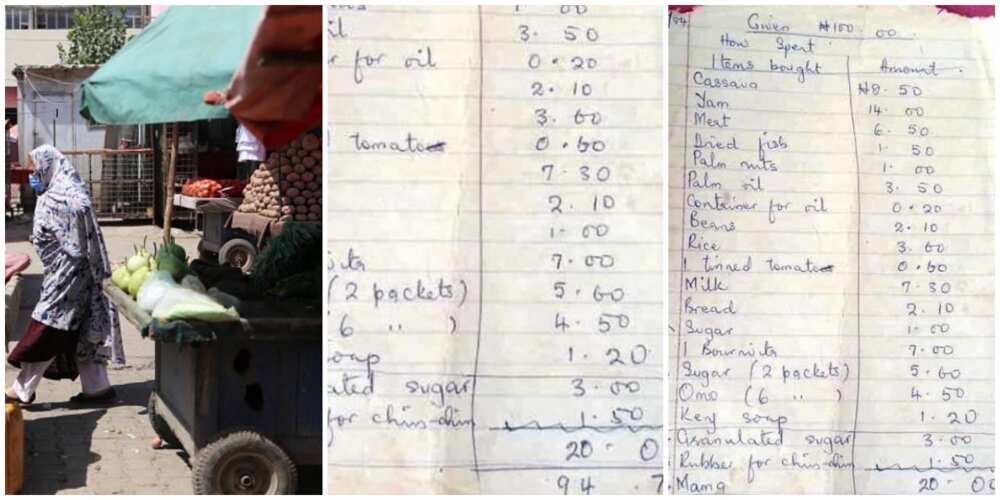 3.50
for oil 0.20
2.10
3.60
tomatoes 0.60
7.30
2.10
1.00
7.00
(2 packets) 5.60
(6 " ) 4.50
1.20
sugar 3.00
for chin-chin 1.50
20.0
94.7
/84 Given ₦100.00
How Spent
Items bought Amount.
Cassava ₦8.50
Yam 14.00
Meat 6.50
Dried fish 1.50
Palm nuts 1.00
Palm oil 3.50
Container for oil 0.20
Beans 2.10
Rice 3.60
1 tinned tomatoes 0.60
Milk 7.30
Bread 2.10
Sugar 1.00
1 Bournvita 7.00
Sugar (2 packets) 5.60
Omo (6 " ) 4.50
Key soap 1.20
Granulated sugar 3.00
Rubber for chin-chin 1.50
Mama 20.00